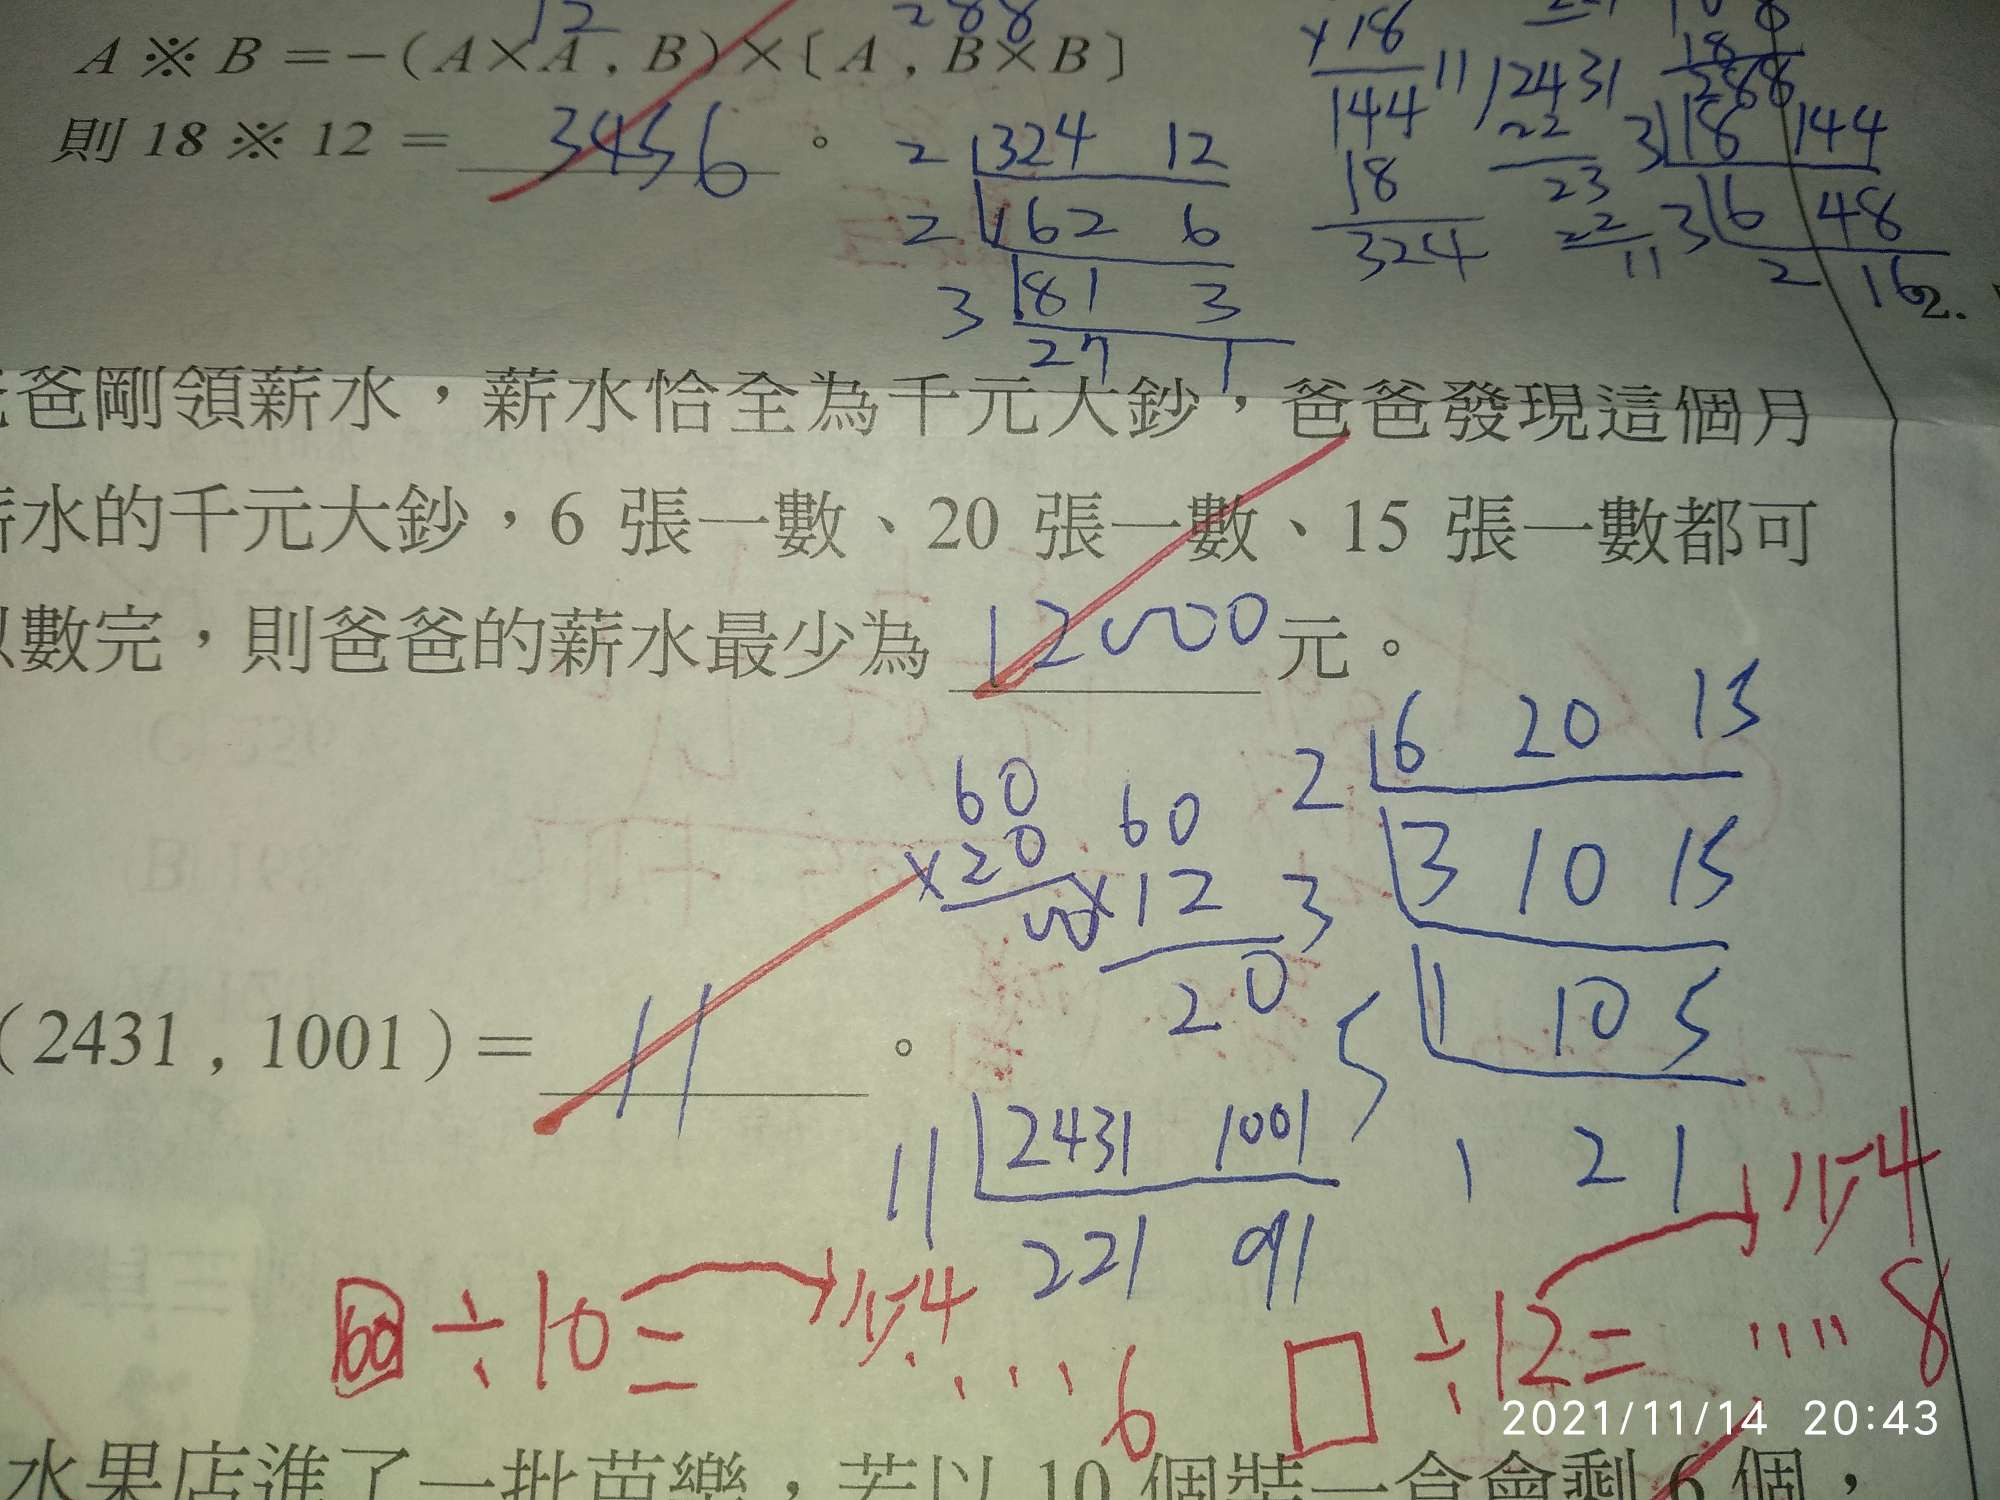 12 288
A※B=-(A×A,B)×〔A,B×B〕
則 18※12= 3456 。
×18
144
18
324
11 2431
22
23
22
11
18
288
3 18 144
3 6 48
2 16
2 324 12
2 162 6
3 81 3
27 1
2.
爸剛領薪水,薪水恰全為千元大鈔,爸爸發現這個月
水的千元大鈔,6 張一數、20 張一數、15 張一數都可
數完,則爸爸的薪水最少為 12000 元。
60
×20
00
60
×12
20
2 6 20 15
3 3 10 15
5 1 10 5
1 2 1
(2431,1001)= 11 。
11 2431 1001
221 91
少4
少4
60÷10= ……6
□÷12= ……8
2021/11/14 20:43
水果店進了一批芭樂,若以 10 個裝一盒會剩 6 個,